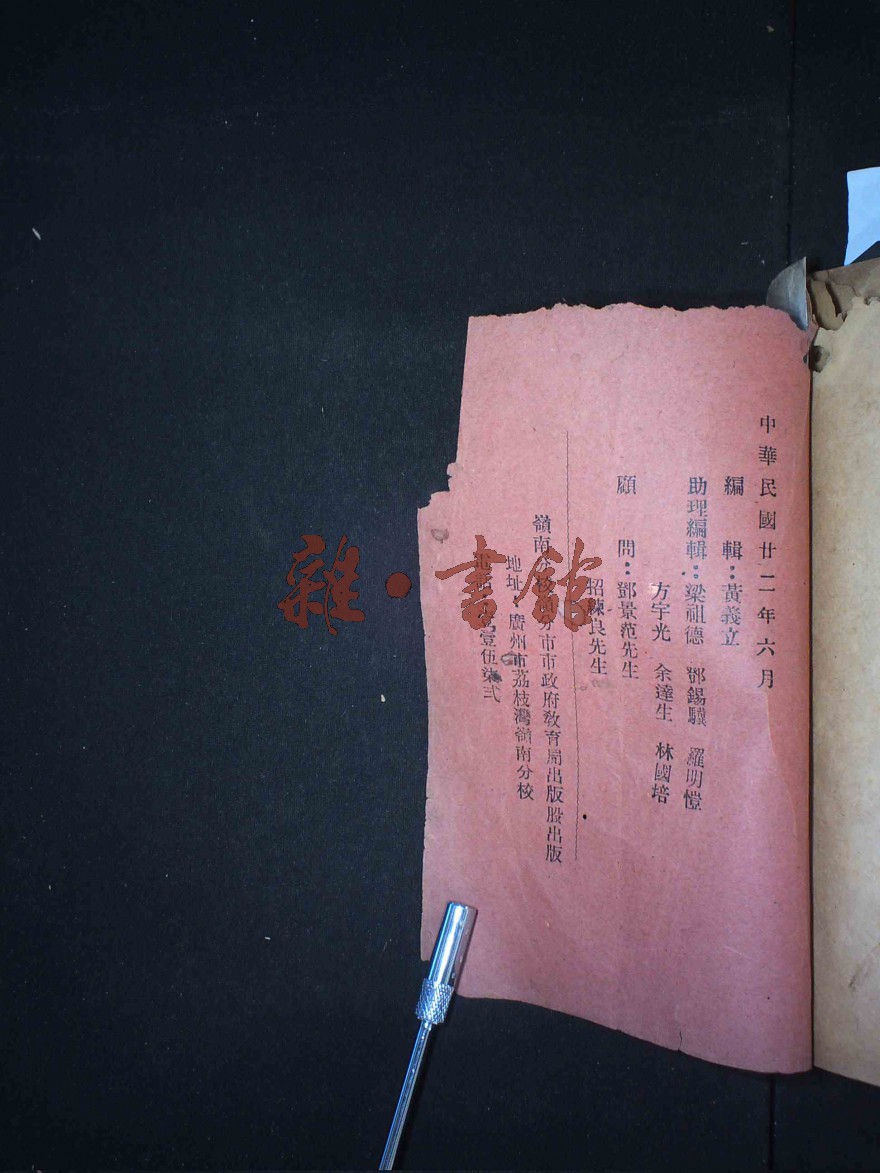 中華民國廿二年六月
編輯：黃義立
助理編輯：梁祖德 鄧錫驥 羅明愷
方宇光 余達生 林國培
顧問：鄧景范先生
招鍊良先生
嶺南分校 市市政府教育局出版股出版
地址：廣州市荔枝灣嶺南分校
壹伍柒弍
雜·書館